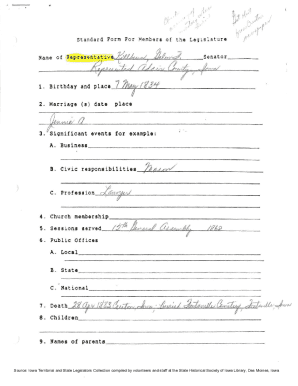 Standard Form For Members of the Legislature
Name of Representative Senator
Represented Adams County, Iowa
1. Birthday and place 7 May 1834
2. Marriage (s) date place
Jennie A.
3. Significant events for example:
A. Business
B. Civic responsibilities Mason
C. Profession Lawyer
4. Church membership
5. Sessions served 12th General Assembly 1868
6. Public Offices
A. Local
B. State
C. National
7. Death 28 Apr 1883 Creston, Iowa, buried
8. Children
9. Names of parents
Source: Iowa Territorial and State Legislators Collection compiled by volunteers and staff at the State Historical Society of Iowa Library, Des Moines, Iowa